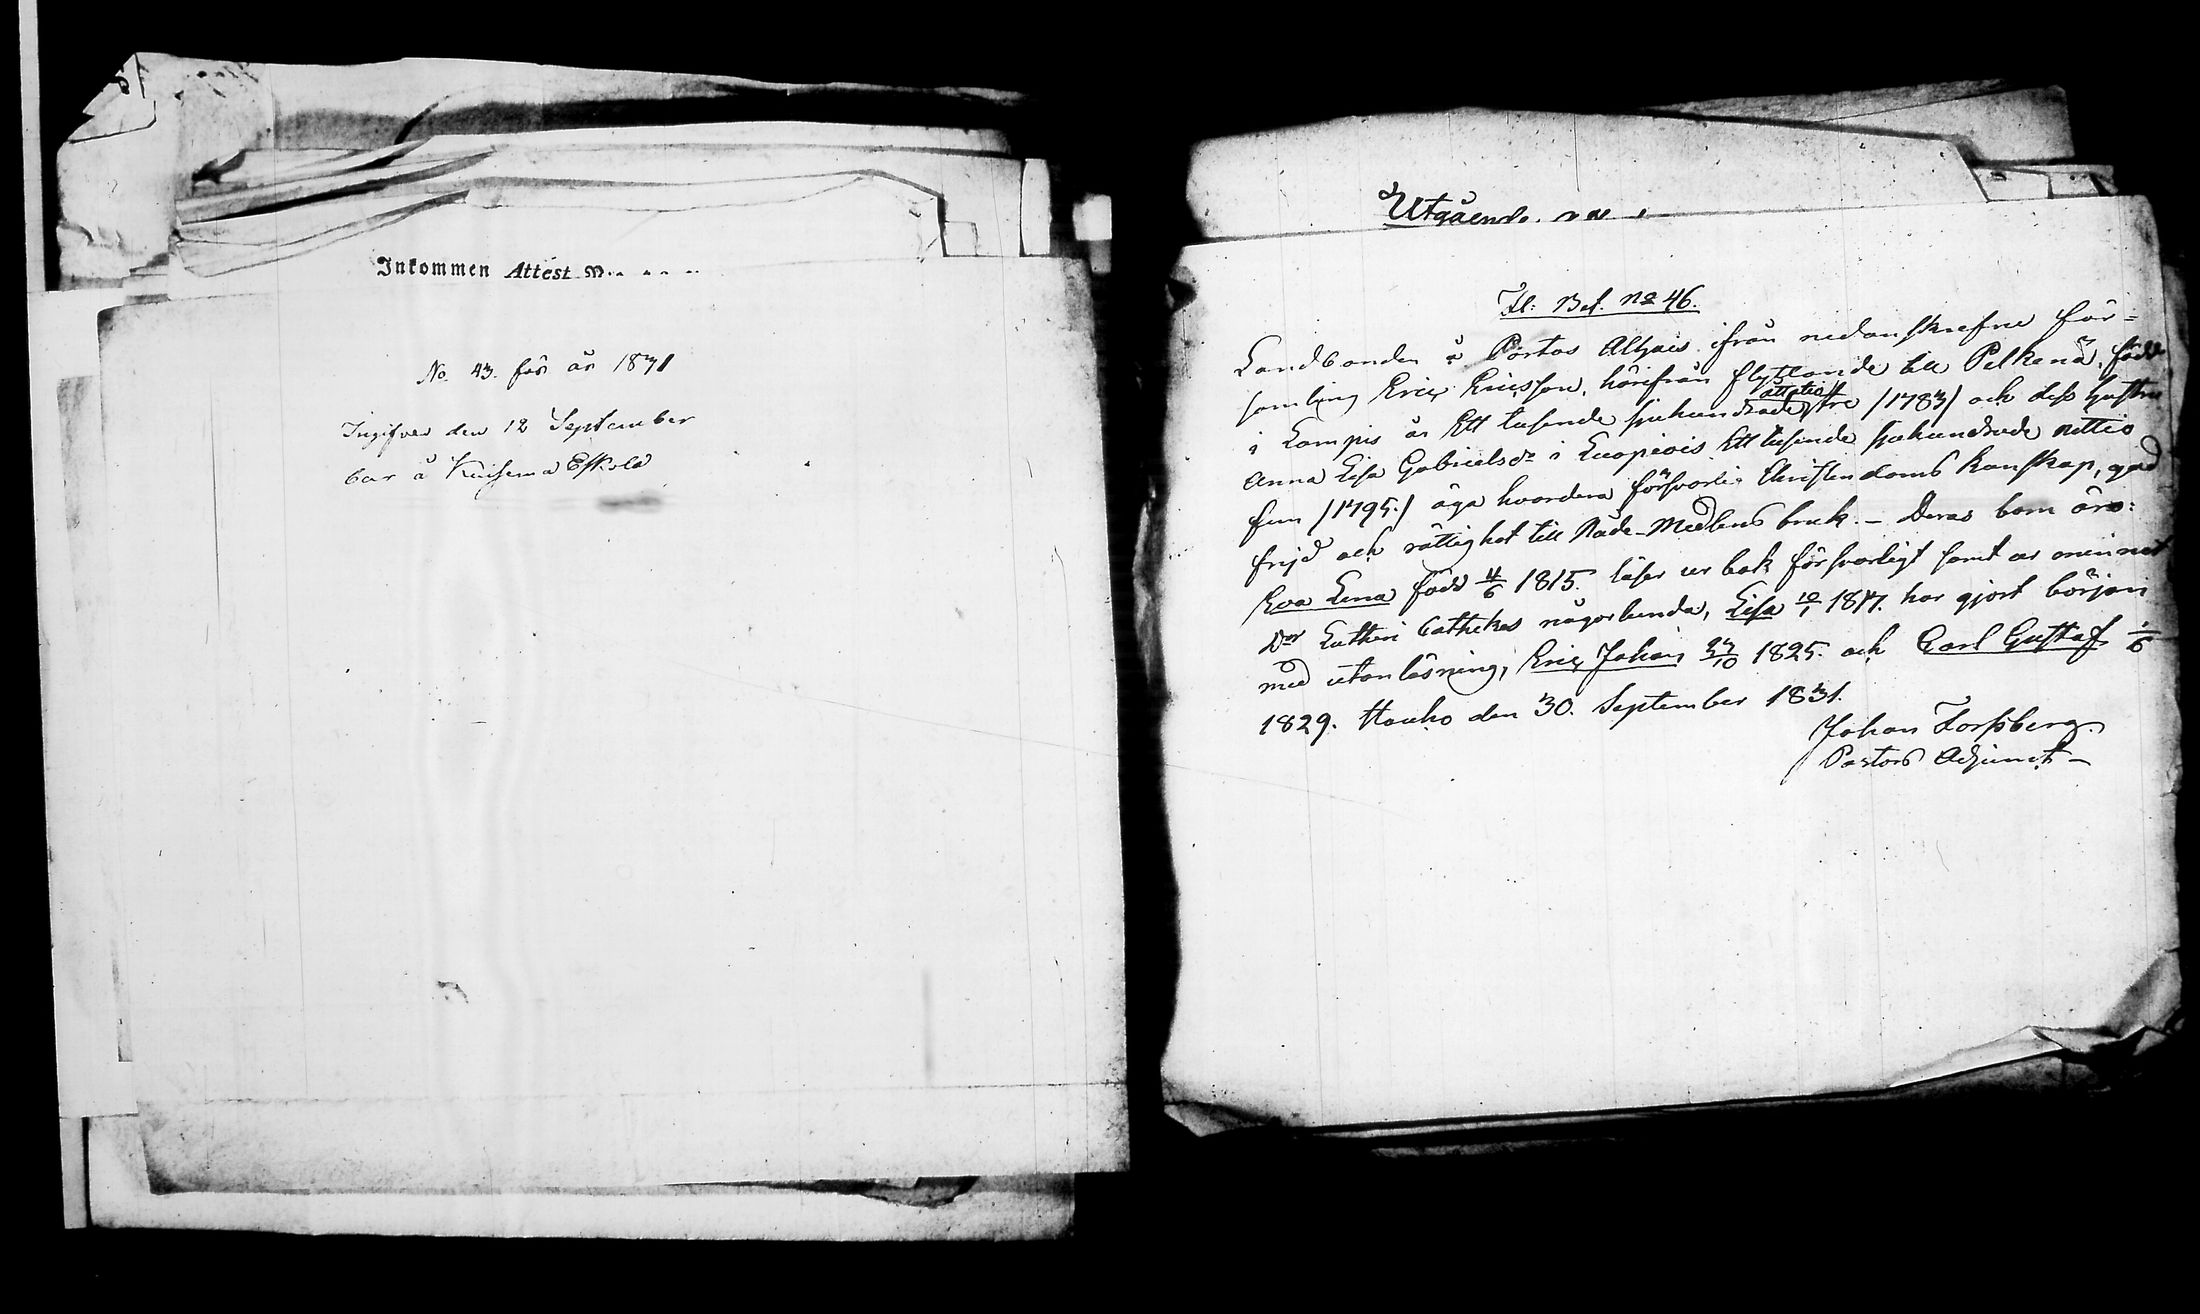 Inkommen Attest
No 43. för år 1831
Ingifven den 12 September
bar å Kuisema Eskola
Utgående
Fl: Bet. No 46.
Landbonden å Portas Alhais ifrån nedanskrefne för=
samling Eric Ericsson, härifrån flyttande till Pelkenä, född
i Lampis år Ett tusende sjuhundrade åttatio tre /1783/ och dess hustru
Anna Lisa Gabrielsdr i Luopiois Ett tusende sjuhundrade nittio
fem /1795./ äga hvardera försvarlig Christendoms kunskap, god
frejd och rättighet till Nåde-Medlens bruk. – Deras barn äro:
Eva Lena född 4/6 1815. läser ur bok försvarligt samt ur minnet
Dor Lutheri Cathekes någorlunda, Lisa 10/1 1817. har gjort början
med utanläsning, Eric Johan 27/10 1825. och Carl Gustaf 1/6
1829. Hauho den 30. September 1831.
Johan Forssberg.
Pastors Adjunct –